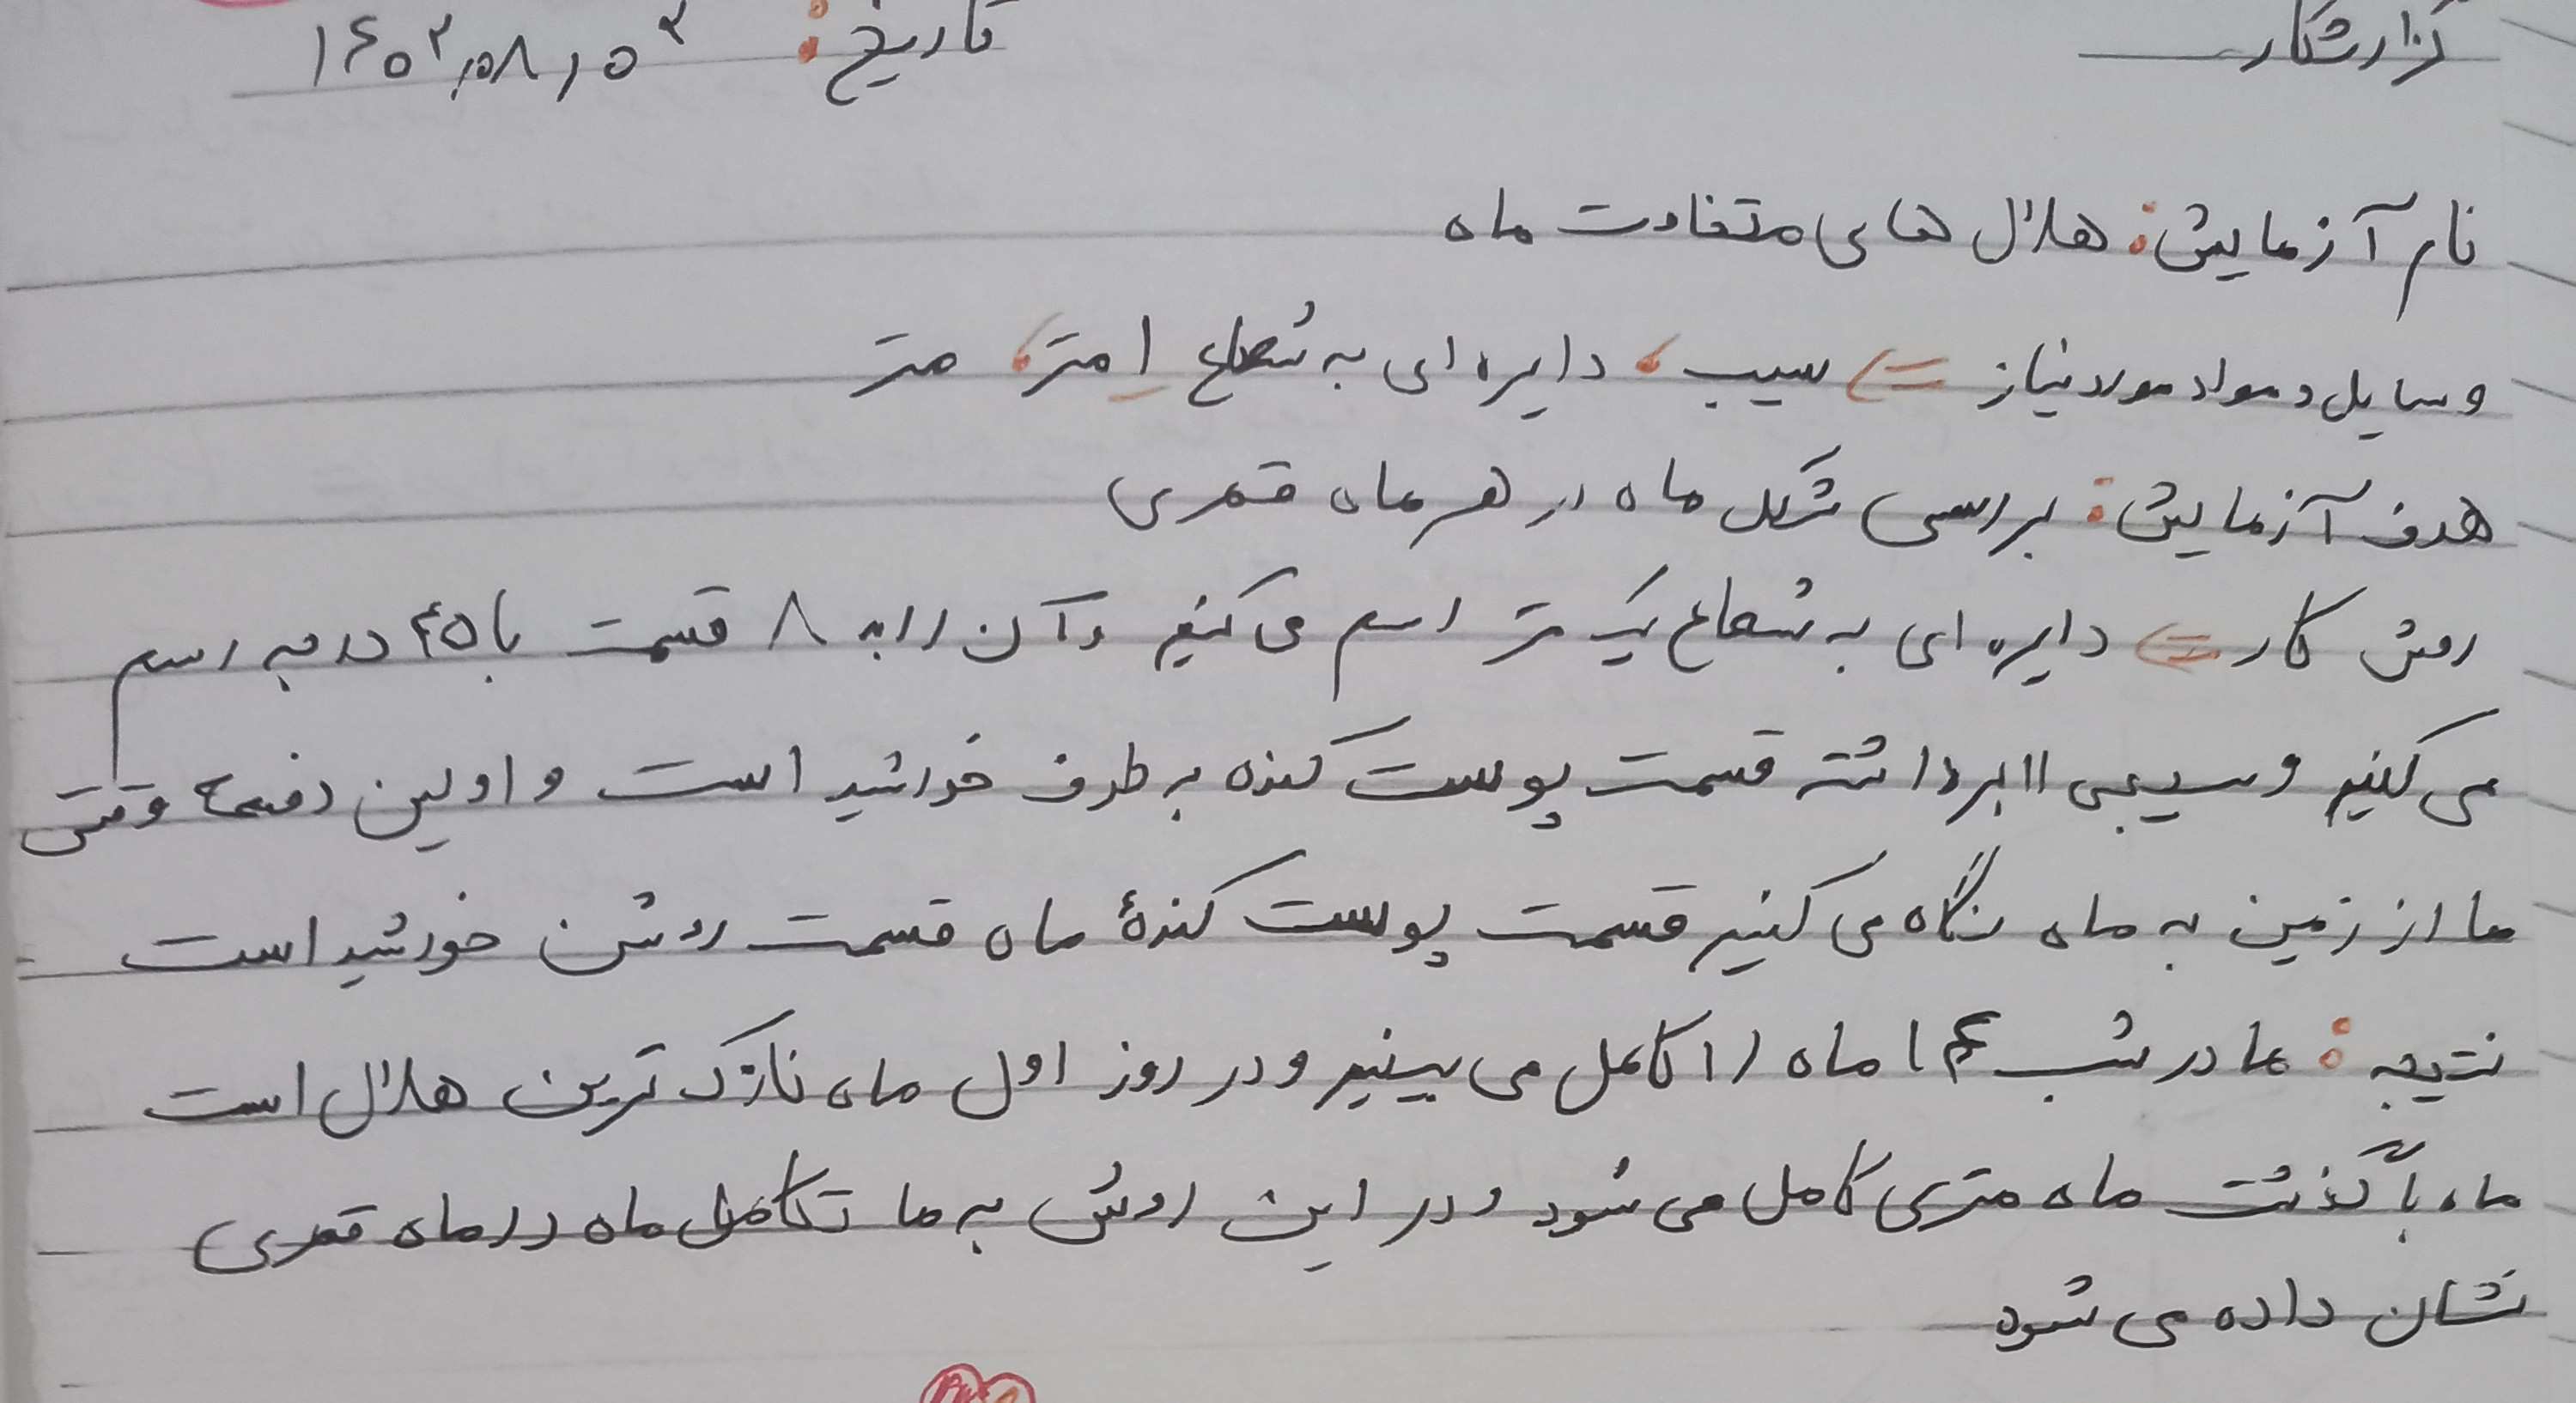 گزارشکار تاریخ: ۱۴۰۳,۰۸,۰۳
نام آزمایش: هلال های متفاوت ماه
وسایل و مواد مورد نیاز <= سیب، دایره ای به شعاع ۱ متر، متر
هدف آزمایش: بررسی شکل ماه در هر ماه قمری
روش کار <= دایره ای به شعاع یک متر رسم می کنیم و آن را به ۸ قسمت با ۴۵ درجه رسم
می کنیم و سیبی را برداشته قسمت پوست کنده به طرف خورشید است و اولین دفعه وقتی
ما از زمین به ماه نگاه می کنیم قسمت پوست کندهٔ ماه قسمت روشن خورشید است
نتیجه: ما در شب ۱۴ ماه را کامل می بینیم و در روز اول ماه نازک ترین هلال است
ماه با گذشت ماه قمری کامل می شود و در این روش به ما تکامل ماه در ماه قمری
نشان داده می شود